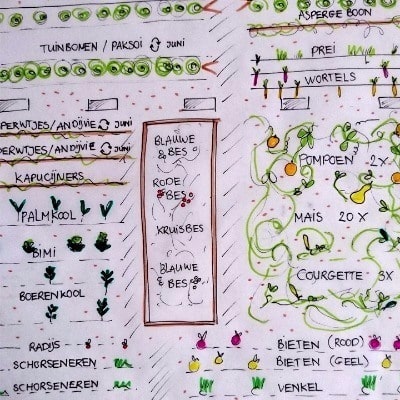 ASPERGE BOON
TUINBOMEN / PAKSOI JUNI
PREI
WORTELS
PERWTJES/ANDIJVIE JUNI
PERWTJES/ANDIJVIE JUNI
KAPUCIJNERS
PALMKOOL
BIMI
BOERENKOOL
RADIJS
SCHORSENEREN
SCHORSENEREN
BLAUWE
& BES
RODE
BES
KRUISBES
BLAUWE
& BES
POMPOEN 2x
MAIS 20 X
COURGETTE 3X
BIETEN (ROOD)
BIETEN (GEEL)
VENKEL